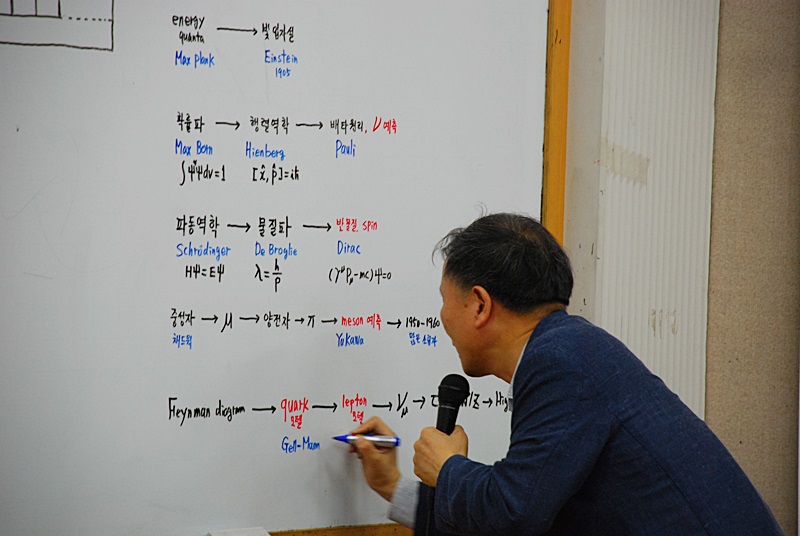 energy quanta → 빛 입자설
Max Plank Einstein
1905
확률파 → 행렬역학 → 배타원리, ν 예측
Max Born Hienberg Pauli
∫ψ*ψdv=1 [x̂, p̂]=iħ
파동역학 → 물질파 → 반물질, spin
Schrödinger De Broglie Dirac
Hψ=Eψ λ=h/p (γ^μ P_μ -mc)ψ=0
중성자 → μ → 양전자 → π → meson 예측 → 1950-1960
채드윅 Yukawa 많은 소립자
Feynman diagram → quark 모델 → lepton 모델 → ν_μ → τ /Z → Higg
Gell-Mann